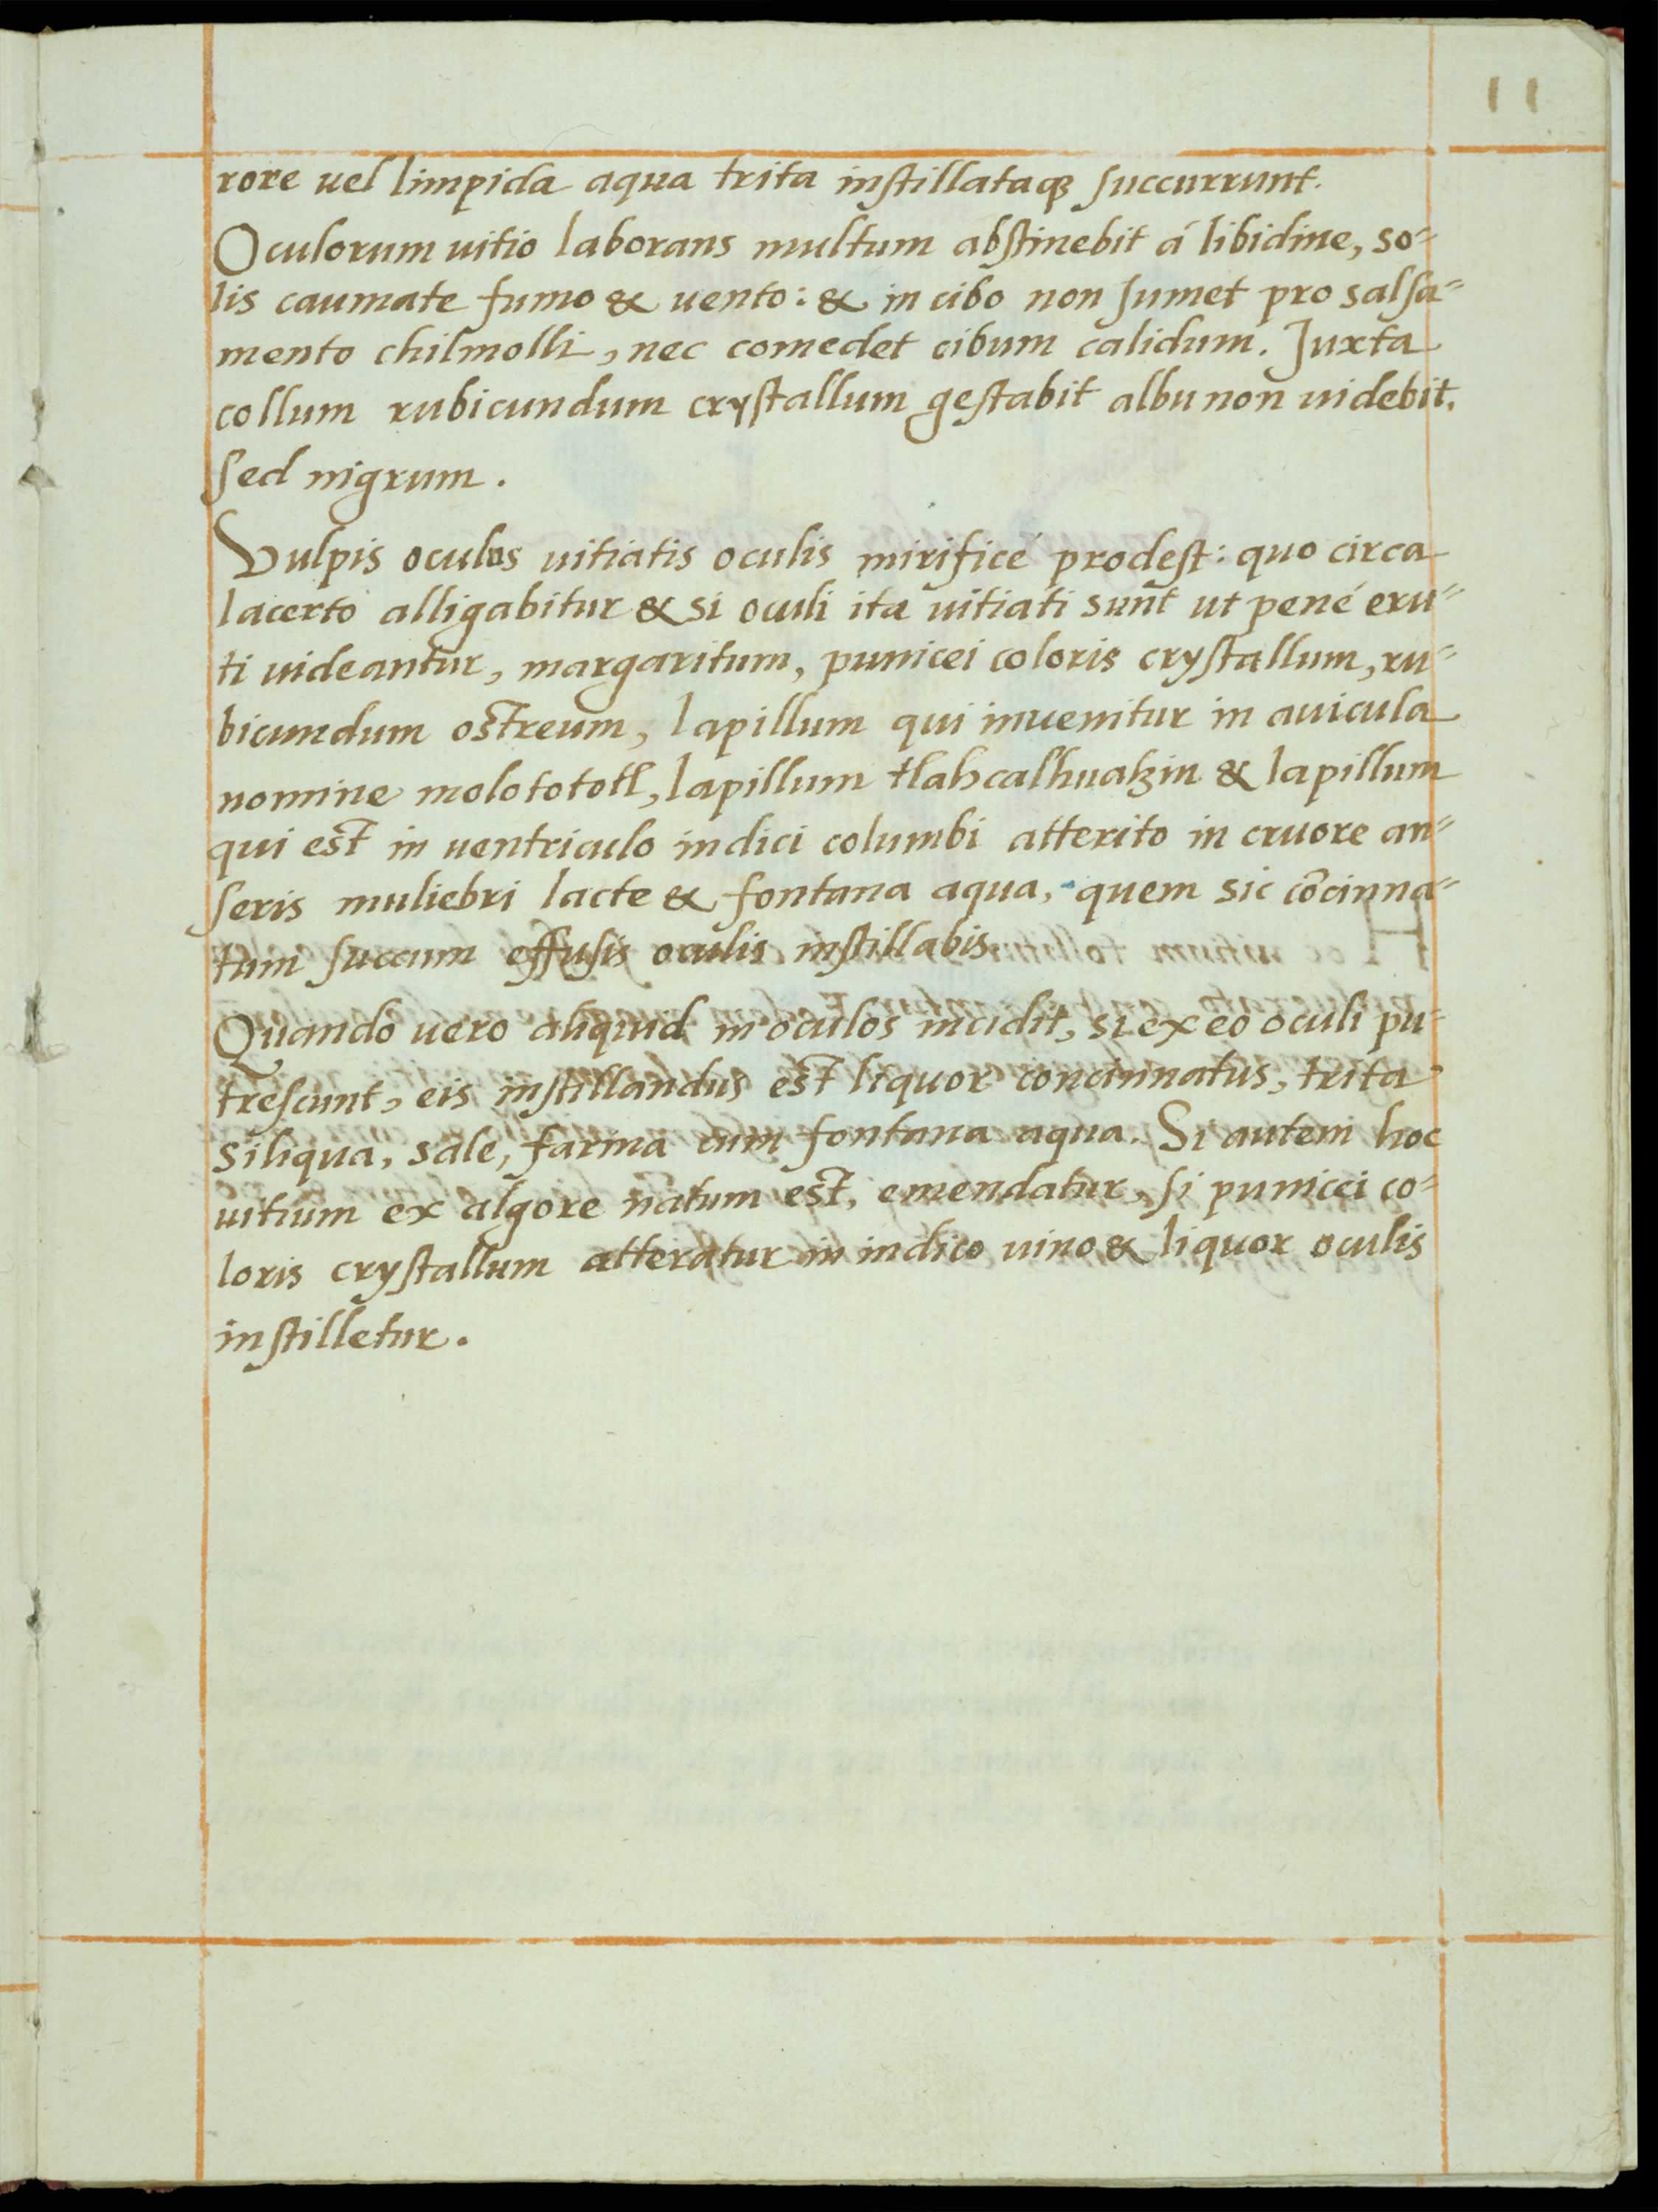 11
rore uel limpida aqua trita instillataqꝫ succurrunt.
Oculorum uitio laborans multum abstinebit á libidine, so=
lis caumate fumo & uento: & in cibo non sumet pro salsa=
mento chilmolli, nec comedet cibum calidum. Juxta
collum rubicundum crystallum gestabit albū non uidebit,
sed nigrum.
Vulpis oculus uitiatis oculis mirificé prodest: quo circa
lacerto alligabitur & si oculi ita uitiati sunt ut pené eru=
ti uideantur, margaritum, punicei coloris crystallum, ru=
bicundum ostreum, lapillum qui inuenitur in auicula
nomine molotototl, lapillum tlahcalhuatzin & lapillum
qui est in uentriculo indici columbi atterito in cruore an=
seris muliebri lacte & fontana aqua, quem sic cōcinna=
tum succum effusis oculis instillabis.
Quando uero aliquid in oculos incidit, si ex eo oculi pu=
trescunt, eis instillandus est liquor concinnatus, trita
siliqua, sale, farina cum fontana aqua. Si autem hoc
uitium ex algore natum est, emendatur, si punicei co=
loris crystallum atteratur in indico uino & liquor oculis
instilletur.